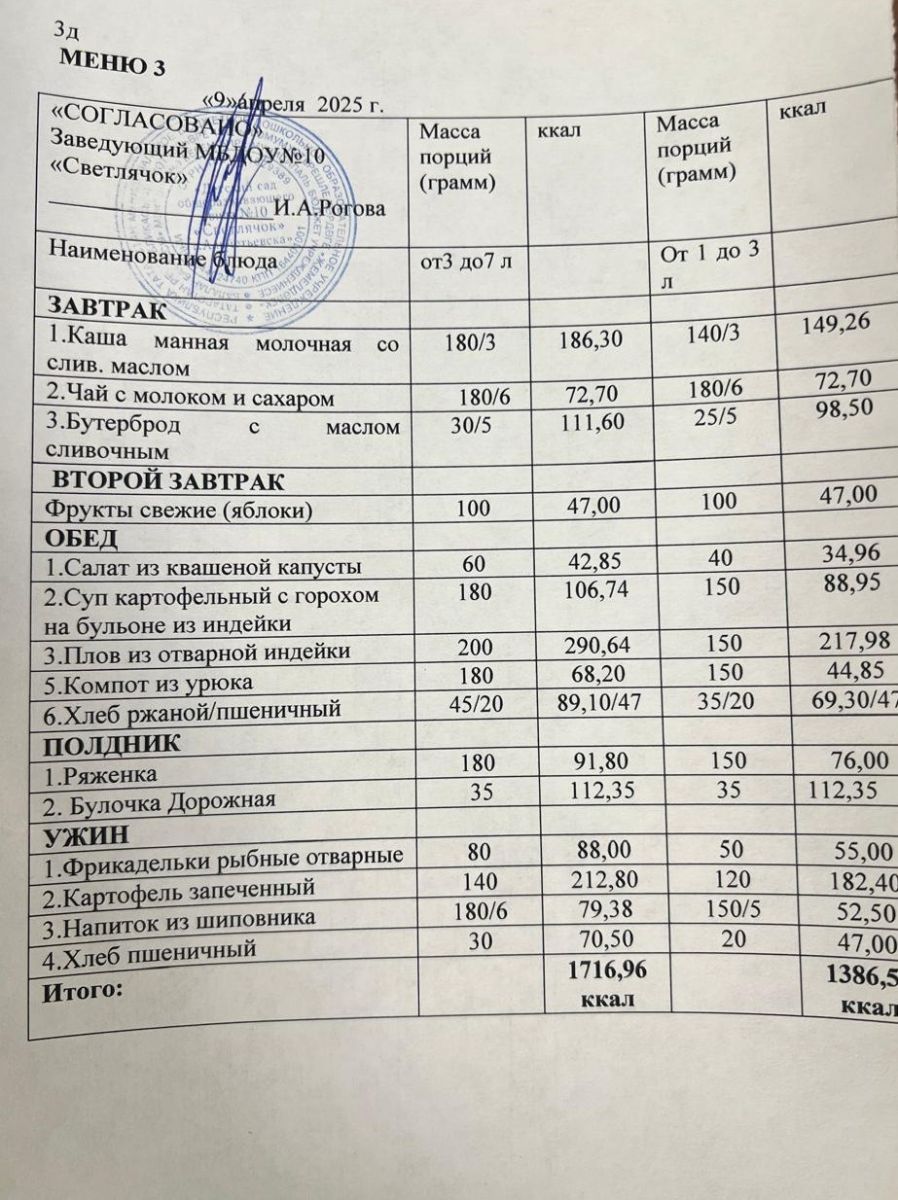 3д
МЕНЮ 3
«9»апреля 2025 г.
«СОГЛАСОВАНО» Масса порций (грамм) ккал Масса порций (грамм) ккал
Заведующий МБДОУ№10
«Светлячок»
И.А.Рогова
Наименование блюда от3 до7 л От 1 до 3 л
ЗАВТРАК
1.Каша манная молочная со 180/3 186,30 140/3 149,26
слив. маслом
2.Чай с молоком и сахаром 180/6 72,70 180/6 72,70
3.Бутерброд с маслом 30/5 111,60 25/5 98,50
сливочным
ВТОРОЙ ЗАВТРАК
Фрукты свежие (яблоки) 100 47,00 100 47,00
ОБЕД
1.Салат из квашеной капусты 60 42,85 40 34,96
2.Суп картофельный с горохом 180 106,74 150 88,95
на бульоне из индейки
3.Плов из отварной индейки 200 290,64 150 217,98
5.Компот из урюка 180 68,20 150 44,85
6.Хлеб ржаной/пшеничный 45/20 89,10/47 35/20 69,30/47
ПОЛДНИК
1.Ряженка 180 91,80 150 76,00
2. Булочка Дорожная 35 112,35 35 112,35
УЖИН
1.Фрикадельки рыбные отварные 80 88,00 50 55,00
2.Картофель запеченный 140 212,80 120 182,40
3.Напиток из шиповника 180/6 79,38 150/5 52,50
4.Хлеб пшеничный 30 70,50 20 47,00
Итого: 1716,96 1386,5
ккал ккал